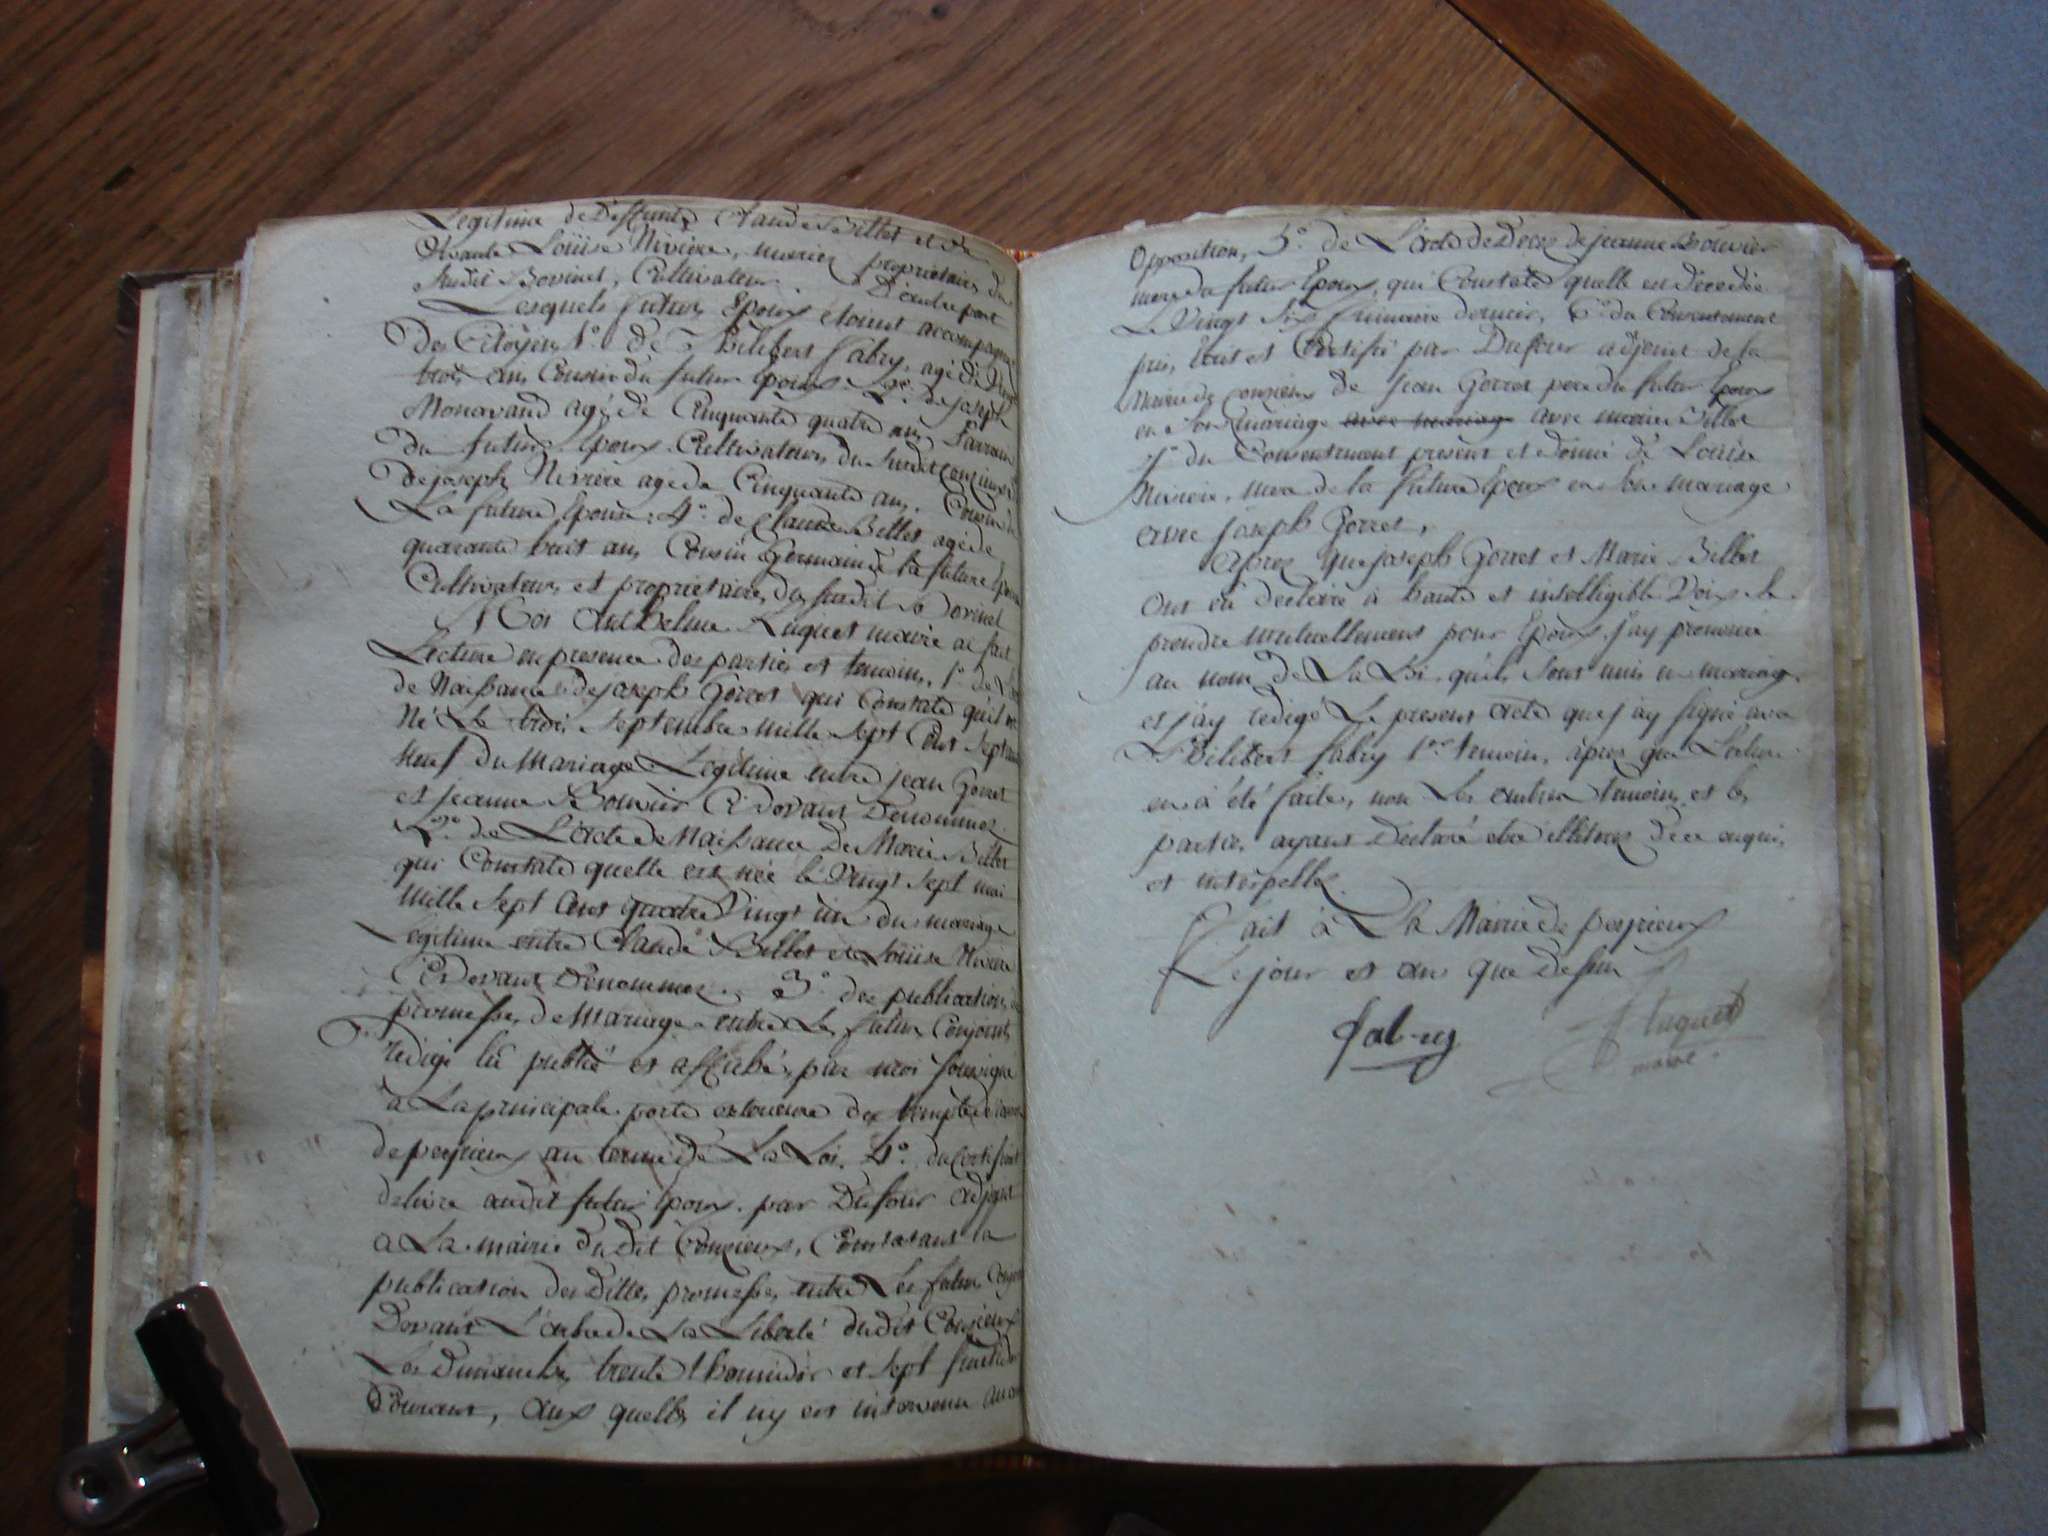 Legitime de Deffunt Claude Billet et de
vivante Loüise Nivière, mariez propriétaires du
susdit Bovinel, Cultivateurs. D'autre part
Lesquels futurs Epoux étoient accompagnés
Des Citöyens 1.° de Philibert fabry, agé de vingt
trois ans Cousin du futur Epoux 2.° de joseph
Monavand agé de Cinquante quatre ans Parrain
du futur Epoux Cultivateurs du susdit
De joseph Nivière agé de Cinquante ans, Cousin de
La future Epouse; 4.° de Claude Billet agé de
quarante huit ans, Cousin Germain de la future Epouse
Cultivateurs et propriétaires du susdit Bovinel
Moi Anthelme Luquet maire ai fait
Lecture en presence des parties et temoins, 1.° de L'acte
de Naissance de joseph Gorret qui Constate qu'il est
Né Le trois Septembre mille Sept Cent Septante
Neuf Du Mariage Legitime entre jean Gorret
et jeanne Bouvier Ci Dovant Dénommez.
2.° de L'acte de Naissance De Marie Billet
qui Constate quelle est née le Vingt Sept mai
mille Sept Cent quatre Vingt un du mariage
Legitime entre Claude Billet et Loüise Nivière
Ci Dovant Dénommez. 3.° des publications de
promesses de Mariage entre Les futurs Conjoints
redigé lu publié et affiché, par moi soussigné
à La principale porte exterieure du temple
de peyrieux au terme de La Loi. 4.° du Certificat
delivré audit futur Epoux par Dufour adjoint
a La mairie du Dit Conzieux, Constatant la
publication des Dittes promesses entre Les futurs
Dovant L'arbre de La Liberté dudit Conzieux
Les Dimanches trente thermidor et Sept fructidor
Courant, aux quelles il n'y est intervenu aucune
Opposition, 5.° de L'acte de Deces de jeanne Bouvier
mere du futur Epoux, qui Constate quelle est décedée
Le Vingt Six frimaire dernier, 6.° du Consentement
pris, Ecrit et Certifié par Dufour adjoint de la
Mairie de Conzieux de Jean Gorret pere du futur Epoux
en Son mariage avec mariage avec marie Billet
7.° du Consentement présent et donné de Loüise
Nivière, mere de la future Epoux en Son mariage
avec joseph Gorret,
Après que joseph Gorret et Marie Billet
Ont eu declaré à haute et intelligible Voix se
prendre mutuellement pour Epoux, j'ay prononcé
au nom de La Loi, qu'ils Sont unis en mariage
et j'ay redigé Le present acte que j'ay signé avec
Philibert fabry 1.er temoin, après que Lecture
en a été faite, non Les autres temoins et les
parties ayant Declaré etre illitérez de ce enquis
et interpellez.
Fait à La Mairie de peyrieux
Le jour et an que Dessus
fabry
Luquet
maire